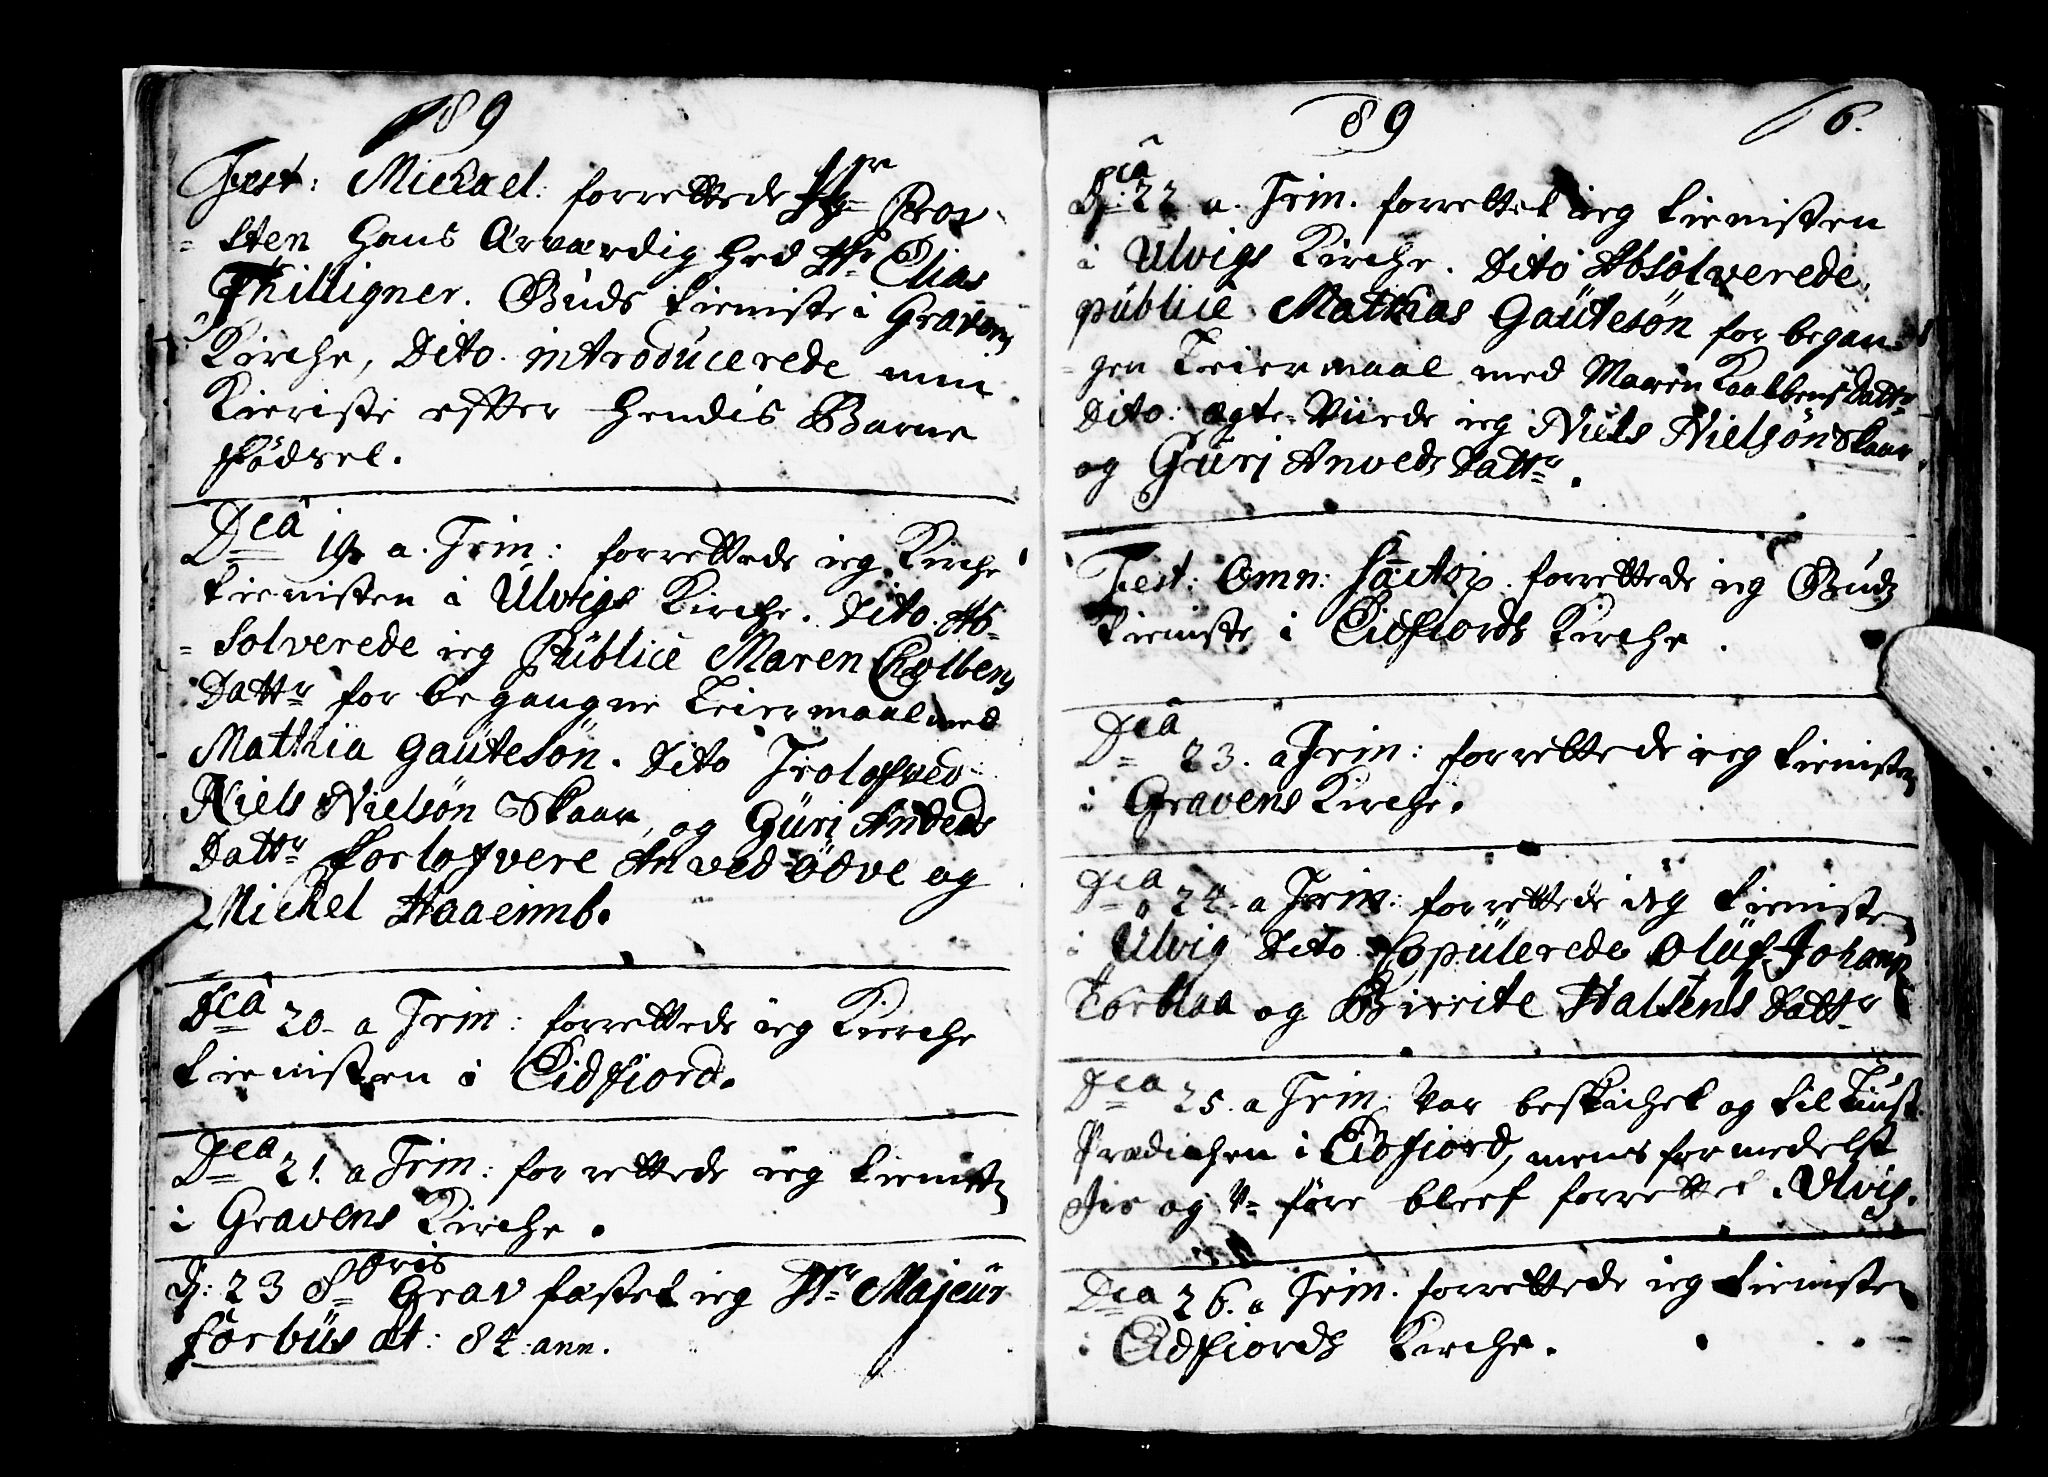 89
Fest: Michael: forrettede Hr Pros
= sten Hans Ærværdighed Hr Elias
Thilligner. Guds tieniste i Gravens
Kirche, Dito. introducerede min
Kieriste effter Hendis Barne
födsel.
Dca 19 a. Trin: forrettede ieg Kirche
tienisten i Ulvigs Kirche. Dito. Ab-
= solverede ieg Publice Maren Colbens
Dattr for begangne Leiermaal med
Mathia Gautesön. Dito Trolofved
Niels Nielsön Skaar, og Guri Anveds
Dattr forlofvere Anved Ödve og
Michel Haaeimb.
Dca 20. a Trin: forrettede ieg Kierche
tienisten i Eidfiord.
Dca 21. a Trin: forrettede ieg tienisten
i Gravens Kirche.
D: 23 8bris Grav fæstet ieg Hr Majeur
forbus æt: 84: ann.
89 6.
Dca 22 a. Trin. forrettet ieg tienisten
i Ulvigs Kirche. Dito Absolverede
publice Mathias Gautesön for began-
gen Leiermaal med Maren Kaalbens Dattr
Dito: ægte viede ieg Niels Nielsön Skaar,
og Guri Anveds Dattr.
Fest: Omn: Sactor. forrettede ieg Guds
tieniste i Eidfiords Kirche.
Dca 23. a Trin: forrettede ieg tienisten
i Gravens Kirche.
Dca 24. a Trin: forrettede ieg tienisten
i Ulvig Dito Copulerede Oluf Johans
Torblaa og Birrite Halstens Dattr
Dca 25. a Trin: Var beskichet og til liust
Prædichen i Eidfiord, mens formedelst
Jis og V= före bleef forrettet i Ulvig.
Dca 26. a Trin. forrettede ieg tienisten
i Eidfiords Kirche.